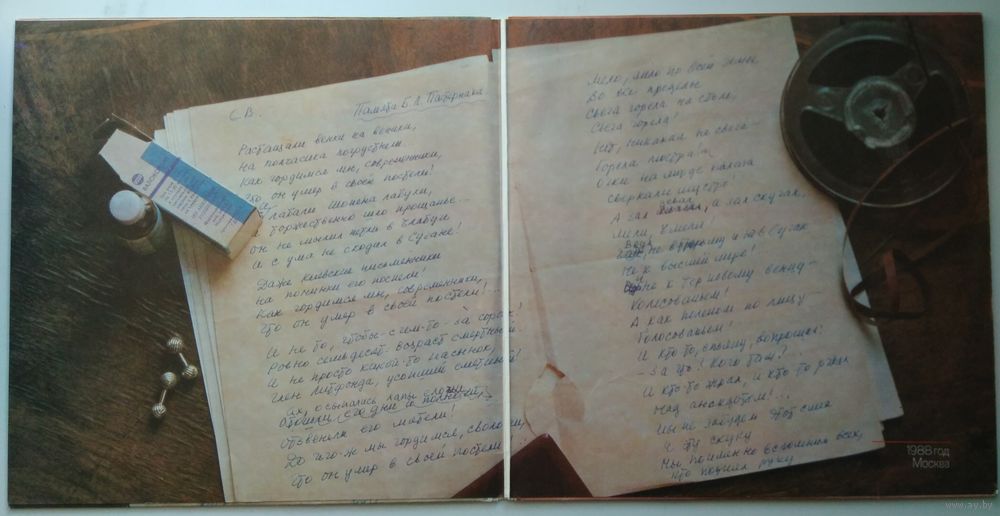 С. В. Памяти Б. Л. Пастернака
Растащали венки на веники,
На полчасика погрустнели
Как гордимся мы, современники,
Что он умер в своей постели!
И лабали Шопена лабухи,
И торжественно шло прощанье...
Он не мылил петли в Елабуге
И с ума не сходил в Сучане!
Даже киевские письменники
На поминки его поспели!
Как гордимся мы, современники,
Что он умер в своей постели!...
И не то, чтобы с чем-то - за сорок!
Ровно семьдесят - возраст смертный.
И не просто какой-то пасынок,
Член Литфонда, усопший сметный!
Ах, осыпались лапы
Отзвенели его метели!
До чего ж мы гордимся, сволочи,
Что он умер в своей постели
Мело, мело по всей земле
Во все пределы
Свеча горела на столе,
Свеча горела!
Нет, никакая не свеча -
Горела люстра!
Очки на морде палача
Сверкали шустро!
А зал зевал, а зал скучал,
Мели, Емеля!
Ведь не в тюрьму и не в Сучан
Не к высшей мере!
И не к терновому венцу
Колесованьем!
А как поленом по лицу
Голосованьем!
И кто-то, спьяну, вопрошал:
- За что? Кого там?
И кто-то жрал, и кто-то ржал
Над анекдотом!...
Мы не забудем этот смех
И эту скуку
Мы поименно вспомним всех,
Кто поднял руку
1988 год
Москва
www.ay.by